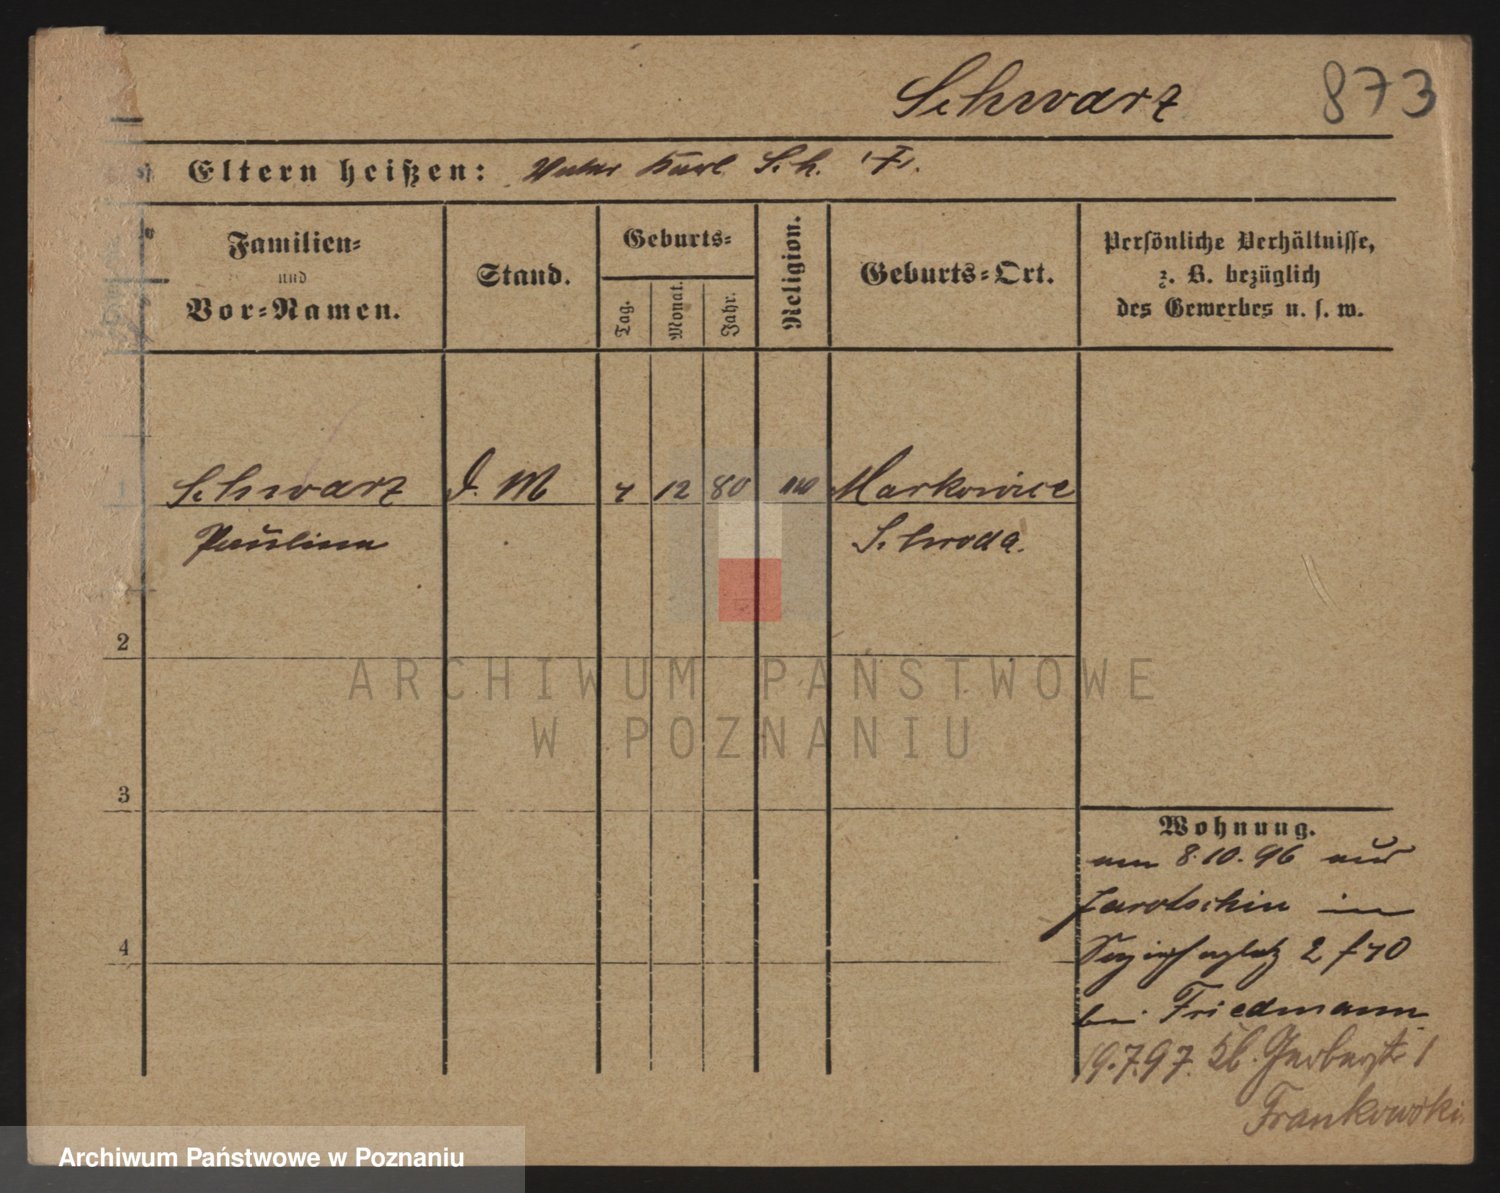 Schwarz 873
Eltern heißen: Vater Karl Sch.
Familien=
und
Vor=Namen.
Stand.
Geburts=
Tag.
Monat.
Jahr.
Religion.
Geburts=Ort.
Persönliche Verhältnisse,
z. B. bezüglich
des Gewerbes u. s. w.
1
Schwarz D. M 7 12 80 Markowice
Paulina Schroda.
2
ARCHIWUM PAŃSTWOWE
W POZNANIU
3
Wohnung.
am 8.10.96 aus
Jarotschin in
2
4
bei Friedmann
19.7.97. Kl. Gerberstr 1
Frankowski
Archiwum Państwowe w Poznaniu